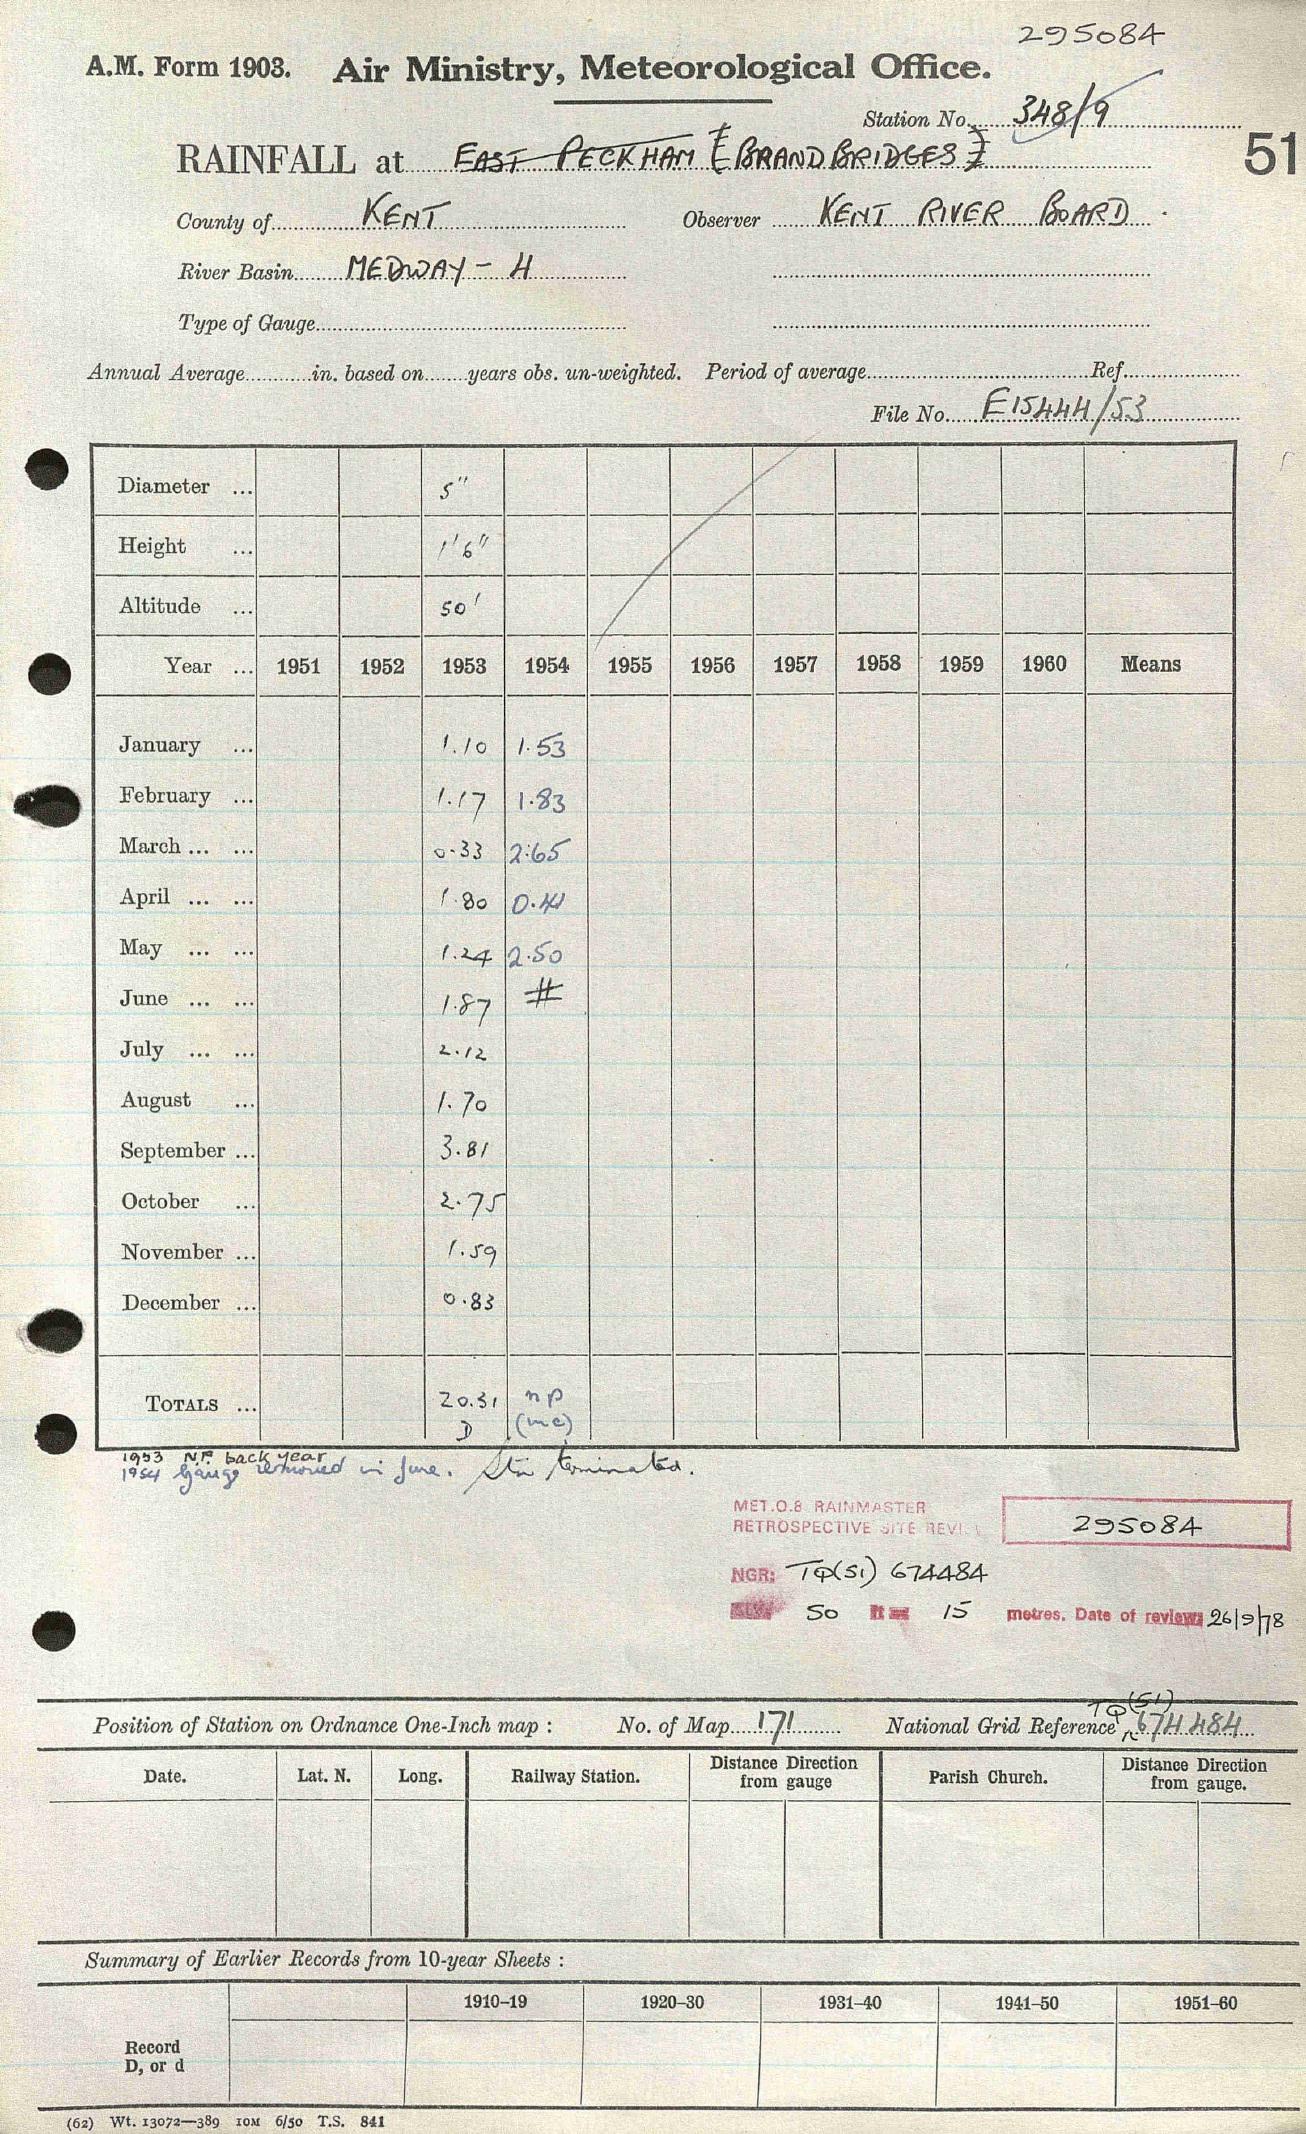 295084
A.M. Form 1903. Air Ministry, Meteorological Office.
Station No. 348/9
RAINFALL at EAST PECKHAM [BRANDBRIDGES] 51
County of KENT Observer KENT RIVER BOARD.
River Basin MEDWAY - 4
Type of Gauge
Annual Average in. based on years obs. un-weighted. Period of average Ref.
File No. E15444/53
Diameter ... 5"
Height ... 1'6"
Altitude ... 50'
Year ... 1951 1952 1953 1954 1955 1956 1957 1958 1959 1960 Means
January ... 1.10 1.53
February ... 1.17 1.83
March ... ... 0.33 2.65
April ... ... 1.80 0.41
May ... ... 1.24 2.50
June ... ... 1.87 #
July ... ... 2.12
August ... 1.70
September ... 3.81
October ... 2.75
November ... 1.59
December ... 0.83
TOTALS ... 20.31 np
D (inc)
1953 N.P. back year
1954 Gauge removed in June. Stn terminated.
MET.O.8 RAINMASTER
RETROSPECTIVE SITE REVI 295084
NGR: TQ(51) 674484
50 ft = 15 metres. Date of review: 26/9/78
TQ (51)
Position of Station on Ordnance One-Inch map : No. of Map 171 National Grid Reference 674 484
Date. Lat. N. Long. Railway Station. Distance Direction from gauge Parish Church. Distance Direction from gauge.
Summary of Earlier Records from 10-year Sheets :
1910–19 1920–30 1931–40 1941–50 1951–60
Record
D, or d
(62) Wt. 13072—389 10M 6/50 T.S. 841